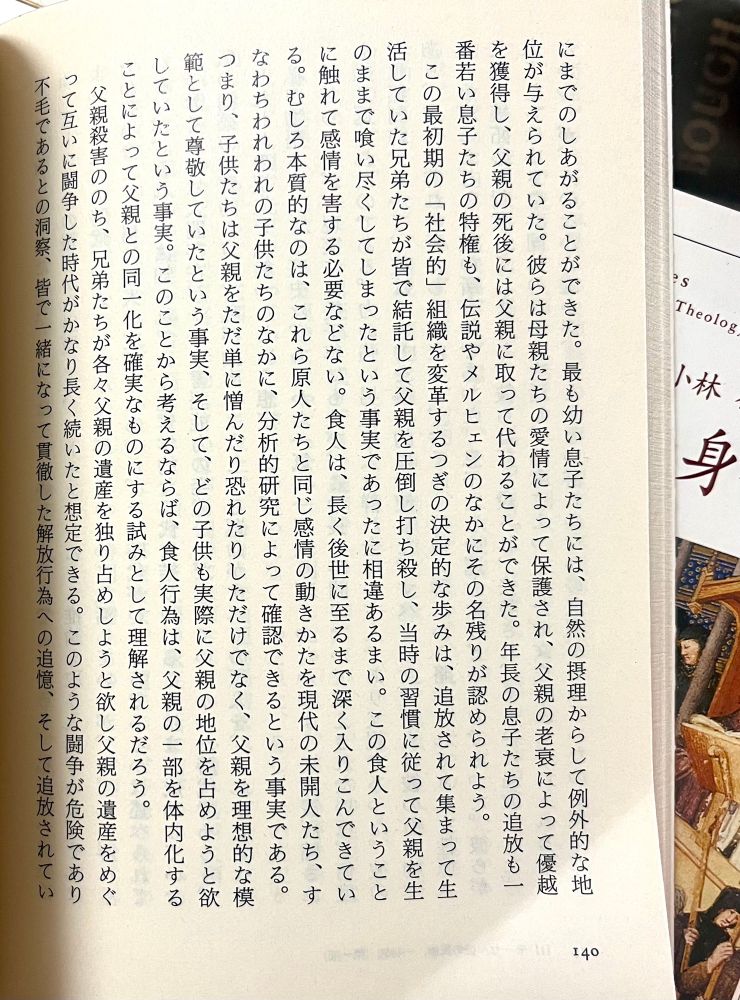 にまでのしあがることができた。最も幼い息子たちには、自然の摂理からして例外的な地
位が与えられていた。彼らは母親たちの愛情によって保護され、父親の老衰によって優越
を獲得し、父親の死後には父親に取って代わることができた。年長の息子たちの追放も一
番若い息子たちの特権も、伝説やメルヒェンのなかにその名残りが認められよう。
この最初期の「社会的」組織を変革するつぎの決定的な歩みは、追放されて集まって生
活していた兄弟たちが皆で結託して父親を圧倒し打ち殺し、当時の習慣に従って父親を生
のままで喰い尽くしてしまったという事実であったに相違あるまい。この食人ということ
に触れて感情を害する必要などない。食人は、長く後世に至るまで深く入りこんできてい
る。むしろ本質的なのは、これら原人たちと同じ感情の動きかたを現代の未開人たち、す
なわちわれわれの子供たちのなかに、分析的研究によって確認できるという事実である。
つまり、子供たちは父親をただ単に憎んだり恐れたりしただけでなく、父親を理想的な模
範として尊敬していたという事実、そして、どの子供も実際に父親の地位を占めようと欲
していたという事実。このことから考えるならば、食人行為は、父親の一部を体内化する
ことによって父親との同一化を確実なものにする試みとして理解されるだろう。
父親殺害ののち、兄弟たちが各々父親の遺産を独り占めしようと欲し父親の遺産をめぐ
って互いに闘争した時代がかなり長く続いたと想定できる。このような闘争が危険であり
不毛であるとの洞察、皆で一緒になって貫徹した解放行為への追憶、そして追放されてい
140
es
Theology
小林
身